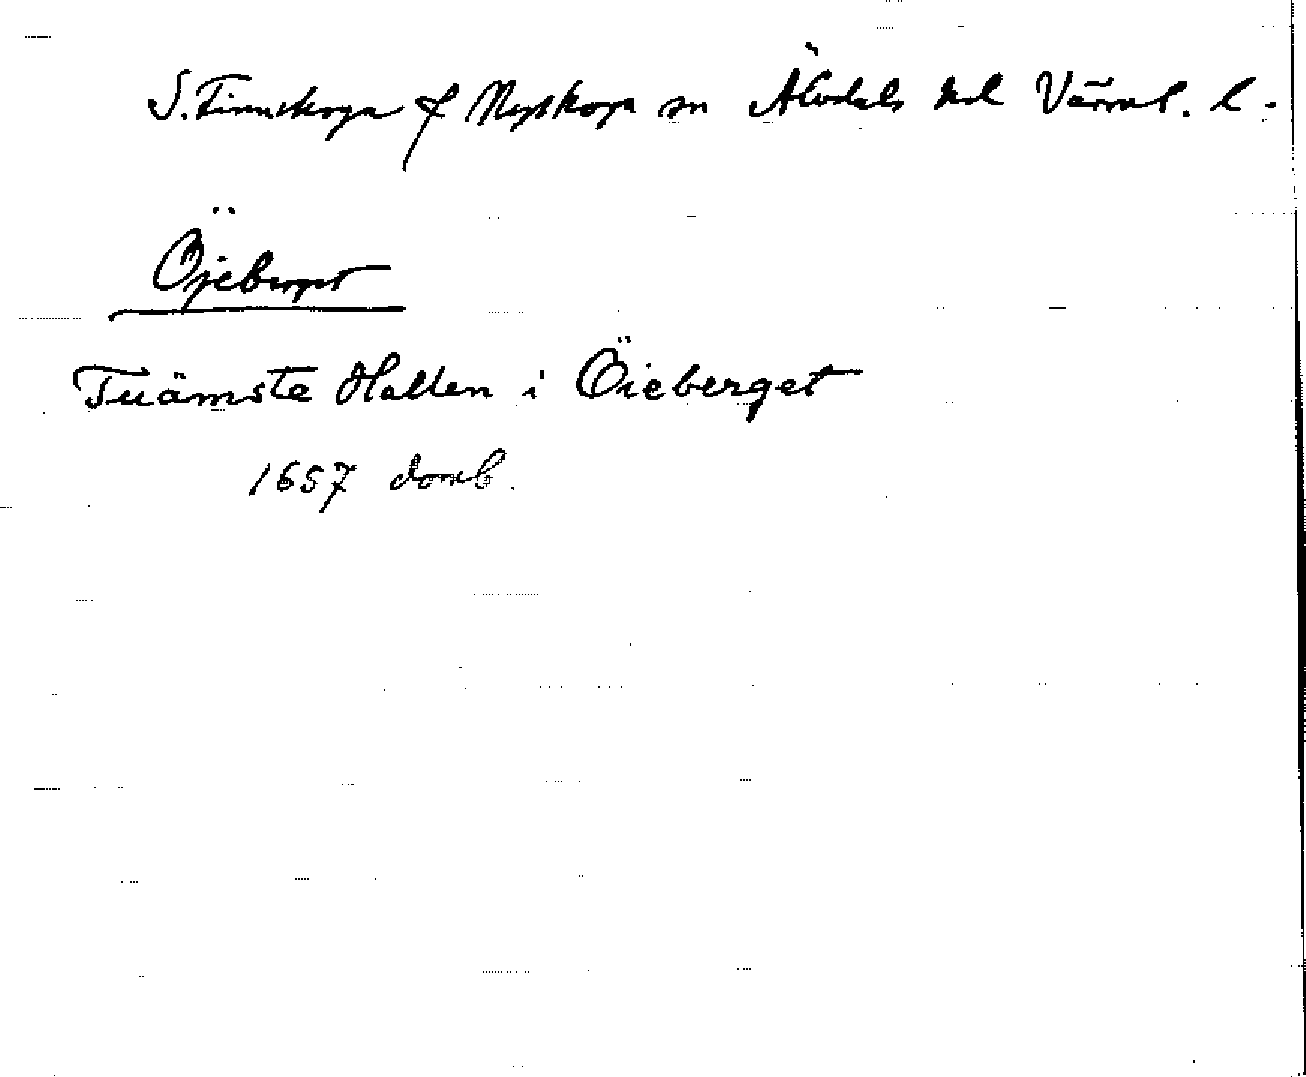 S. Finnskoga f Nyskoga sn Älvdals hd Värml. l.
Öjeberget
Tuämste Halten i Öieberget
1657 domb.